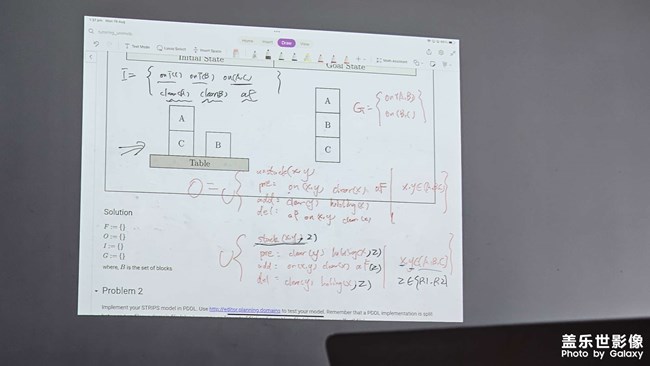 Initial State
Goal State
I = { onT(C) onT(B) on(A,C)
clear(A) clear(B) aF }
G = { on(A,B)
on(B,C) }
A
C
B
Table
A
B
C
O = U {
unstack(x,y)
pre: on(x,y), clear(x), aF
add: clear(y) holding(x)
del: aF on(x,y) clear(x)
x,y ∈ {A,B,C}
Solution
F := {}
O := {}
I := {}
G := {}
where, B is the set of blocks
U {
stack(x,y,z)
pre: clear(y), holding(x,z)
add: on(x,y) clear(x) aF(z)
del: clear(y) holding(x,z)
x,y ∈ {A,B,C}
z ∈ {R1,R2}
Problem 2
Implement your STRIPS model in PDDL. Use http://editor.planning.domains to test your model. Remember that a PDDL implementation is split
盖乐世影像
Photo by Galaxy